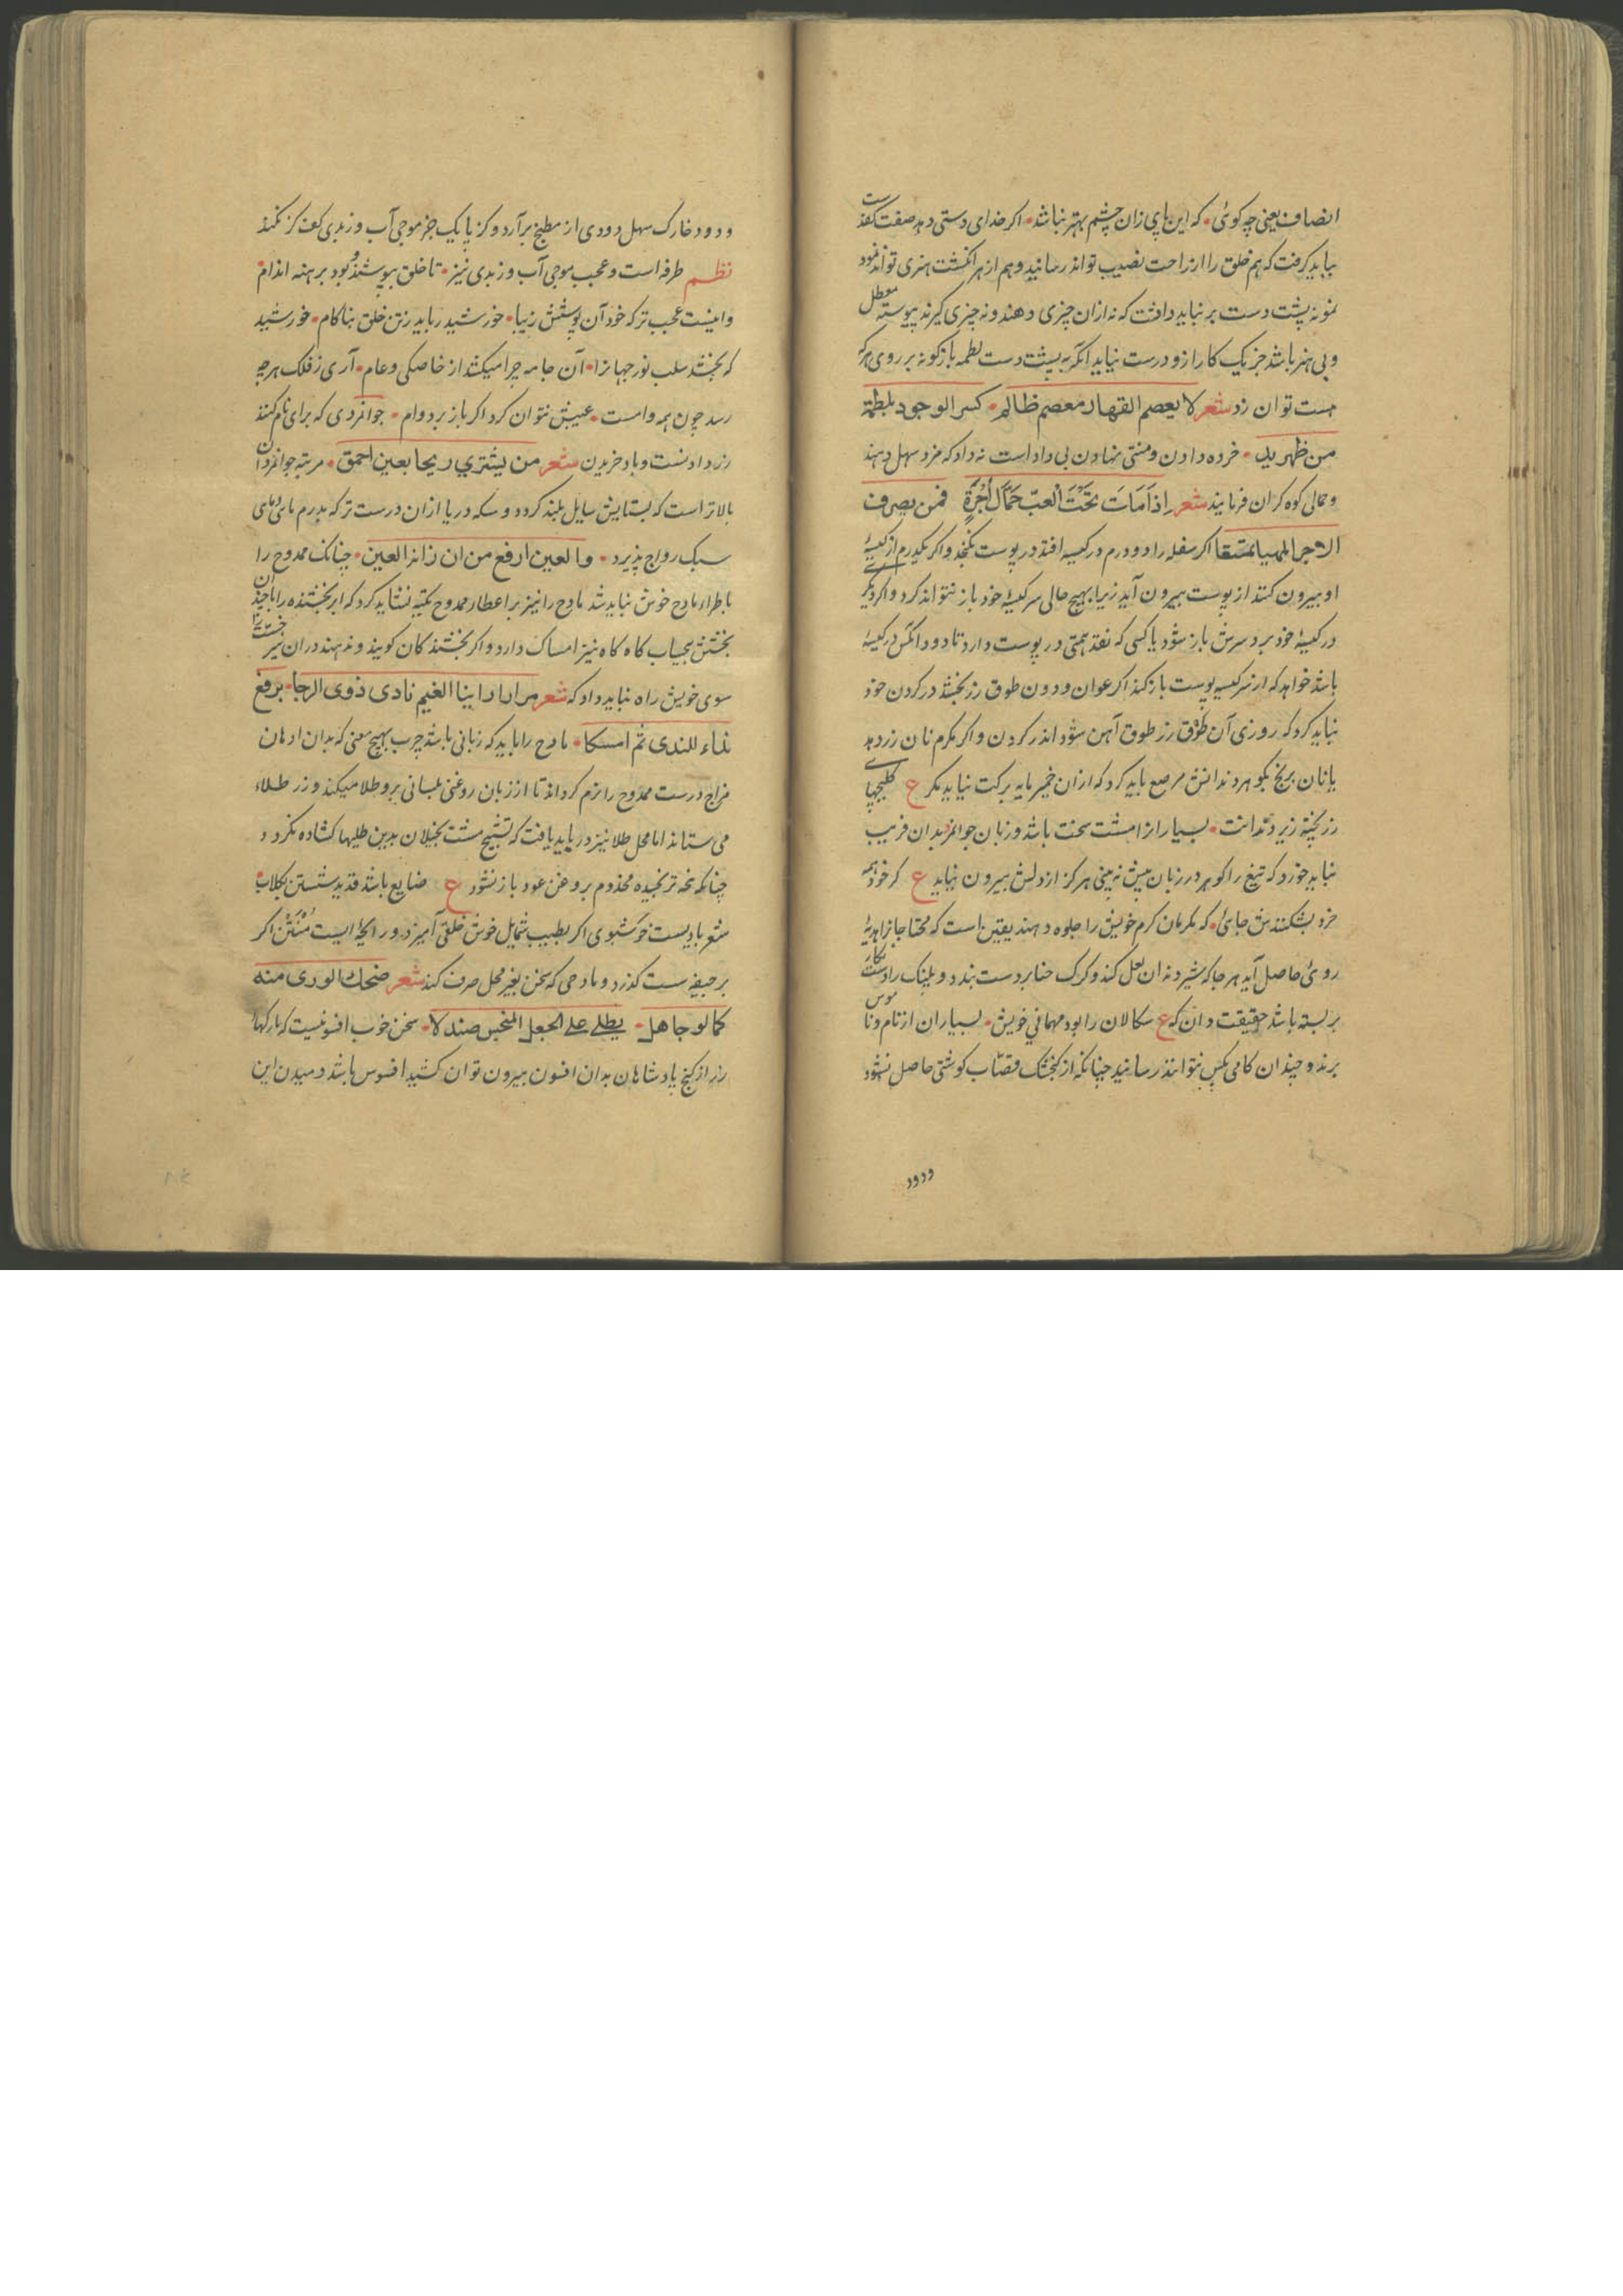 انصاف یعنی چه کوئی • که این پای زان چشم بهتر نباشد • اکر خدای دستی دهد صفت کف
بباید کرفت که هم خلق را ازو راحت نصیب تواند رسانید و هم از هر انکشت هنری تواند نمود
نمونه پشت دست بر نباید داشت که نه ازان چیزی دهند و نه چیزی کیرند پیوسته معطل
و بی هنر باشد جز یک کار ازو درست نیاید انکه به پشت دست لطمه بازکونه بر روی هر که
هست توان زد شعر لا یعصم القهار معصم ظالم • کسر الوجود بلطمة
من ظهر ید • خرده دادن و منتی نهادن بی داد است نه داد که مزد سهل دهند
و حمالی کوه کران فرمایند شعر اِذَا مَاتَ تَحْتَ الْعبّ حَمَّال أُجْرَةٍ فمن یصرف
الاجر المهیا اکر سفله را دو درم در کیسه افتد در پوست نکنجد و اکر یکدرم از کیسهٔ
او بیرون کنند از پوست بیرون آید زیرا بهیچ حالی سر کیسهٔ خود باز نتواند کرد و اکر دیکری
در کیسهٔ خود برد سرش باز شود یا کسی که نقد همتی در پوست دارد تا دو دانکش در کیسهٔ
باشد خواهد که از سر کیسه پوست باز کند اکر عوان و دون طوق زر بخشد در کردن خود
نباید کرد که روزی آن طوق زر طوق آهن شود اندر کردن و اکر مکرم نان زر دهد
یا نان برنج بکوهر دندانش مرصع باید کرد که ازان خمیر مایه برکت نیاید مکر ع کلیجهای
زر پخته زیر دندانت • بسیار از امشت سخت باشد و زبان جوانمرد بدان فریب
نباید خورد که تیغ را کوهر در زبان بیش نه بینی هرکز از دلش بیرون نیاید ع کر خود همه
خرد بشکنندش جائی • که مکرمان کرم خویش را جلوه دهند یقین است که محتاجانرا هدیهٔ
روئی حاصل آید هر جا که شیر دندان لعل کند و کرک حنا بر دست بندد و پلنک را دست نکار
بر بسته باشد حقیقت دان که ع سکالان را بود مهمانی خویش • بسیاران از نام و ناموس
برند و چندان کامی بکس نتوانند رسانید چنانکه از کنجشک قصّاب کوشتی حاصل نشود
ودود
ودود خارک سهل دودی از مطبخ برآرد و کز یا یک جز موجی آب و زبدی کف کز نکند
نظم طرفه است و عجب موجی آب و زبدی نیز • تا خلق بپوشند و بود برهنه اندام •
وانیست عجب تر که خود آن پوشش زیبا • خورشید رباید زتن خلق بناکام • خورشید
که بخشد سلب نور جهانرا • آن جامه چرا میکشد از خاصکی و عام • آری ز فلک هرچه
رسد چون همه وامست • عیبش نتوان کرد اکر باز برد وام • جوانمردی که برای نام کنند
زر دادنست و باد خریدن شعر من یشتري ریحا بعین احمق • مرتبه جوانمردان
بالاتر است که بستایش سایل بلند کردد و سکه دریا ازان درست تر که بدرم ماهی
سبک رواج پذیرد • والعین ارفع من ان زانه العین • چنانک ممدوح را
باطراء مادح خوش نباید شد مادح را نیز بر اعطار ممدوح تکیه نشاید کرد که ابر بخشنده را با چندان
بخشش بیحساب کاه کاه نیز امساک دارد و اکر بخشند کان کویند و ندهند دران نیز خست را
سوی خویش راه نباید داد که شعر مرارا راینا الغیم نادی ذوی الرجا • برفع
نداء للندی ثم امسکا • مادح را باید که زبانی باشد چرب بهیچ معنی که بدان ادهان
مزاج درست ممدوح را نرم کرداند تا از زبان روغنی بلسانی برو طلا میکند و زر طلاء
می ستاند اما محل طلا نیز در یابد یافت که تشنج مشت بخیلان بدین طلیها کشاده نکردد
چنانکه نخه ترنجیده مجذوم بروغن عود باز نشود ع ضایع باشد قدید شستن بکلاب •
شعر بادیست خوشبوی اکر بطیب شمایل خوش خلقی آمیزد و رایحهٔ ایست مُنْتِن اکر
بر جیفه ست کذرد و مادحی که سخن بغیر محل صرف کند شعر ضحك الوری منه
کما لو جاهل • یطلی علی الجعل المنجس صندلا • سخن خوب افسونیست که مار کهاء
زر از کنج پادشاهان بدان افسون بیرون توان کشید افسوس باشد دمیدن این